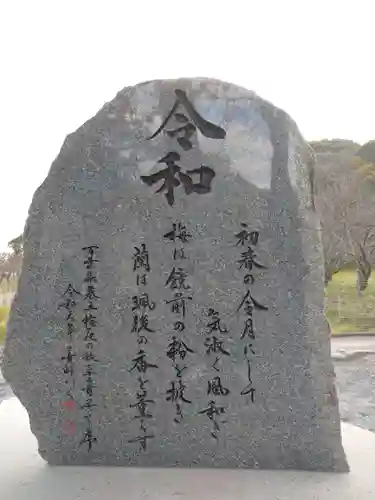 令和
初春の令月にして
気淑く風和ぎ
梅は鏡前の粉を披き
蘭は珮後の香を薫らす
万葉集巻五梅花の歌三十二首序
令和元年